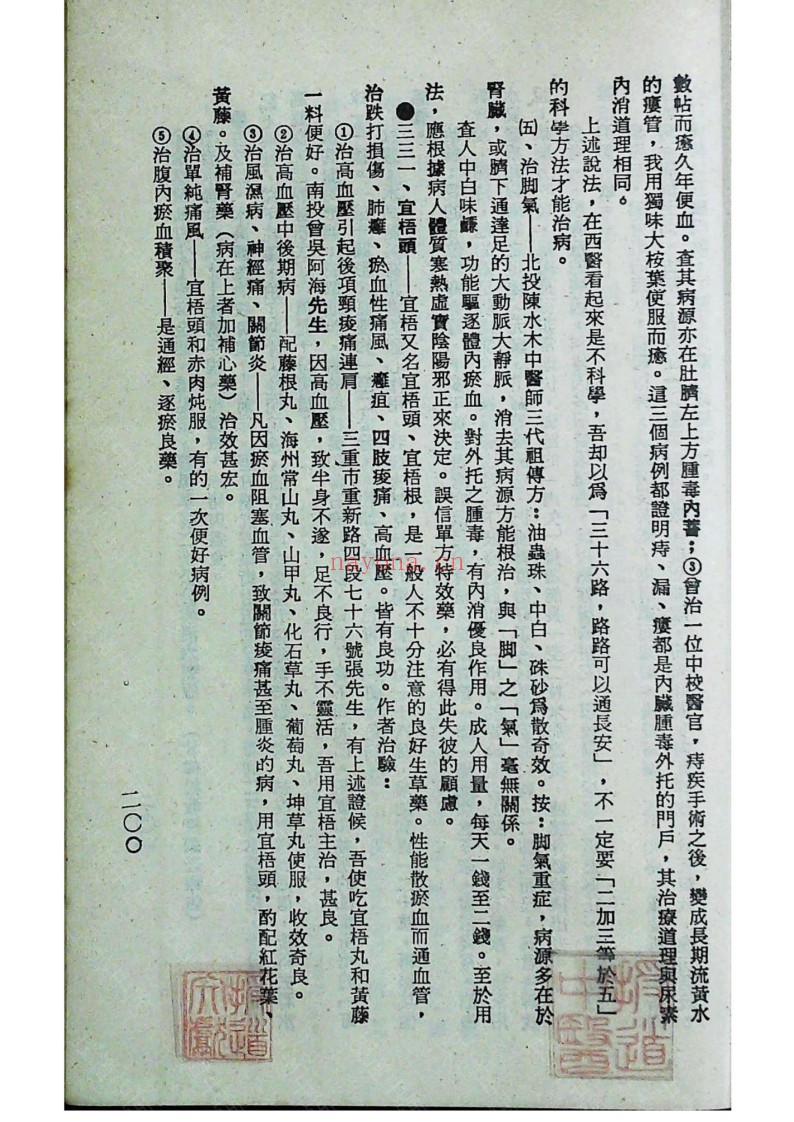 數帖而癒久年便血。查其病源亦在肚臍左上方腫毒內蓄；③曾治一位中校醫官，痔疾手術之後，變成長期流黃水
的瘻管，我用獨味大桉葉使服而癒。這三個病例都證明痔、漏、瘻都是內臟腫毒外托的門戶，其治療道理與尿素
內消道理相同。
上述說法，在西醫看起來是不科學，吾却以爲「三十六路，路路可以通長安」，不一定要「二加三等於五」
的科學方法才能治病。
㈤、治脚氣——北投陳水木中醫師三代祖傳方：油蟲珠、中白、硃砂爲散奇效。按：脚氣重症，病源多在於
腎臟，或臍下通達足的大動脈大靜脈，消去其病源方能根治，與「脚」之「氣」毫無關係。
查人中白味鹹，功能驅逐體內瘀血。對外托之腫毒，有內消優良作用。成人用量，每天一錢至二錢。至於用
法，應根據病人體質寒熱虛實陰陽邪正來決定。誤信單方特效藥，必有得此失彼的顧慮。
●三三一、宜梧頭——宜梧又名宜梧頭、宜梧根，是一般人不十分注意的良好生草藥。性能散瘀血而通血管，
治跌打損傷、肺癰、瘀血性痛風、癰疽、四肢痠痛、高血壓。皆有良功。作者治驗：
①治高血壓引起後項頸痠痛連肩——三重市重新路四段七十六號張先生，有上述證候，吾使吃宜梧丸和黃藤
一料便好。南投曾吳阿海先生，因高血壓，致半身不遂，足不良行，手不靈活，吾用宜梧主治，甚良。
②治高血壓中後期病——配藤根丸、海州常山丸、山甲丸、化石草丸、葡萄丸、坤草丸使服，收效奇良。
③治風濕病、神經痛、關節炎——凡因瘀血阻塞血管，致關節痠痛甚至腫炎的病，用宜梧頭，酌配紅花葉、
黃藤。及補腎藥（病在上者加補心藥）治效甚宏。
④治單純痛風——宜梧頭和赤肉炖服，有的一次便好病例。
⑤治腹內瘀血積聚——是通經、逐瘀良藥。
二〇〇
nayona.cn